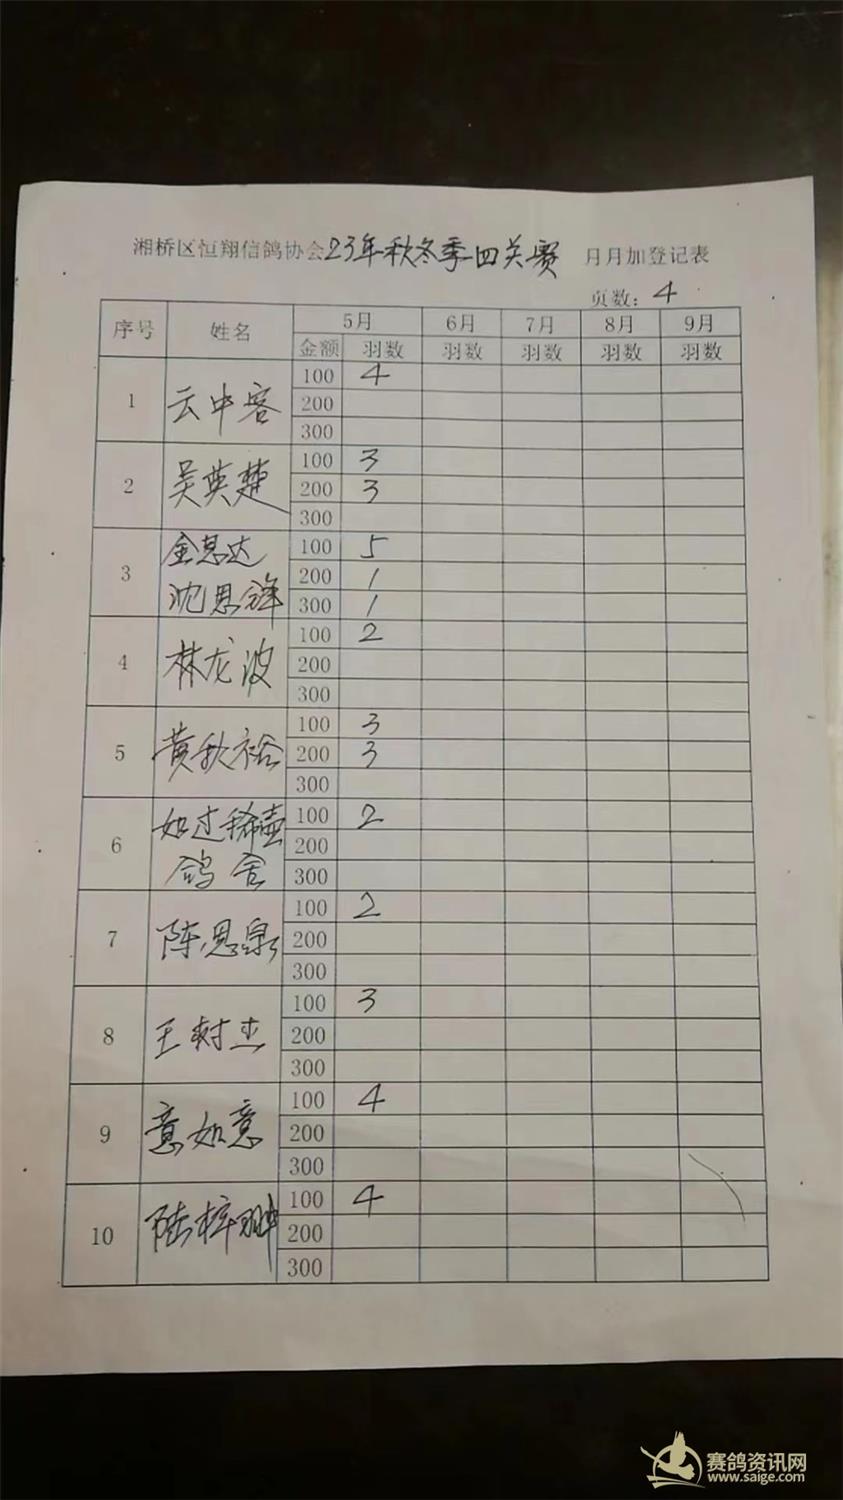 湘桥区恒翔信鸽协会23年秋冬季四关赛 月月加登记表
页数：4
序号 姓名 5月 6月 7月 8月 9月
金额 羽数 羽数 羽数 羽数 羽数
1 云中客 100 4
200
300
2 吴英楚 100 3
200 3
300
3 金思达 100 5
沈思锋 200 1
300 1
4 林龙波 100 2
200
300
5 黄秋裕 100 3
200 3
300
6 如过稀壶 100 2
鸽舍 200
300
7 陈思泉 100 2
200
300
8 王树杰 100 3
200
300
9 意如意 100 4
200
300
10 陆梓翀 100 4
200
300
赛鸽资讯网
www.saige.com